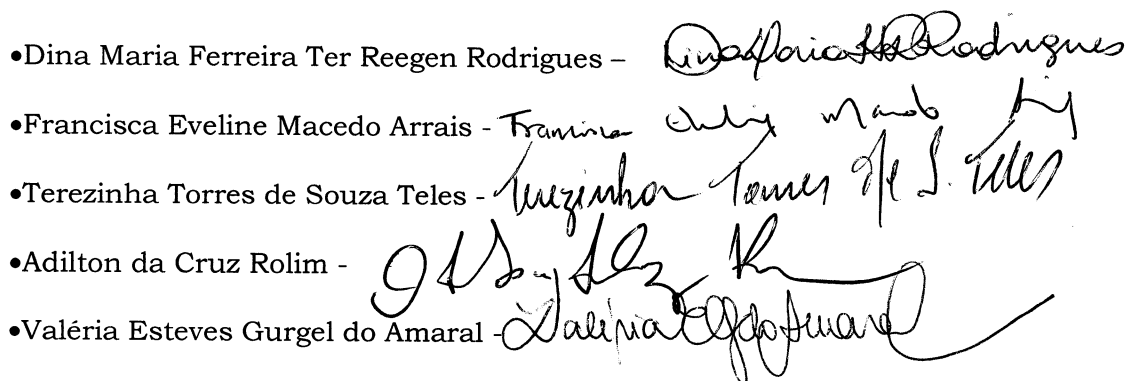 •Dina Maria Ferreira Ter Reegen Rodrigues – Dina Maria Rodrigues
•Francisca Eveline Macedo Arrais - Francisca
•Terezinha Torres de Souza Teles - Terezinha Torres de S. Teles
•Adilton da Cruz Rolim -
•Valéria Esteves Gurgel do Amaral - Valéria EG do Amaral